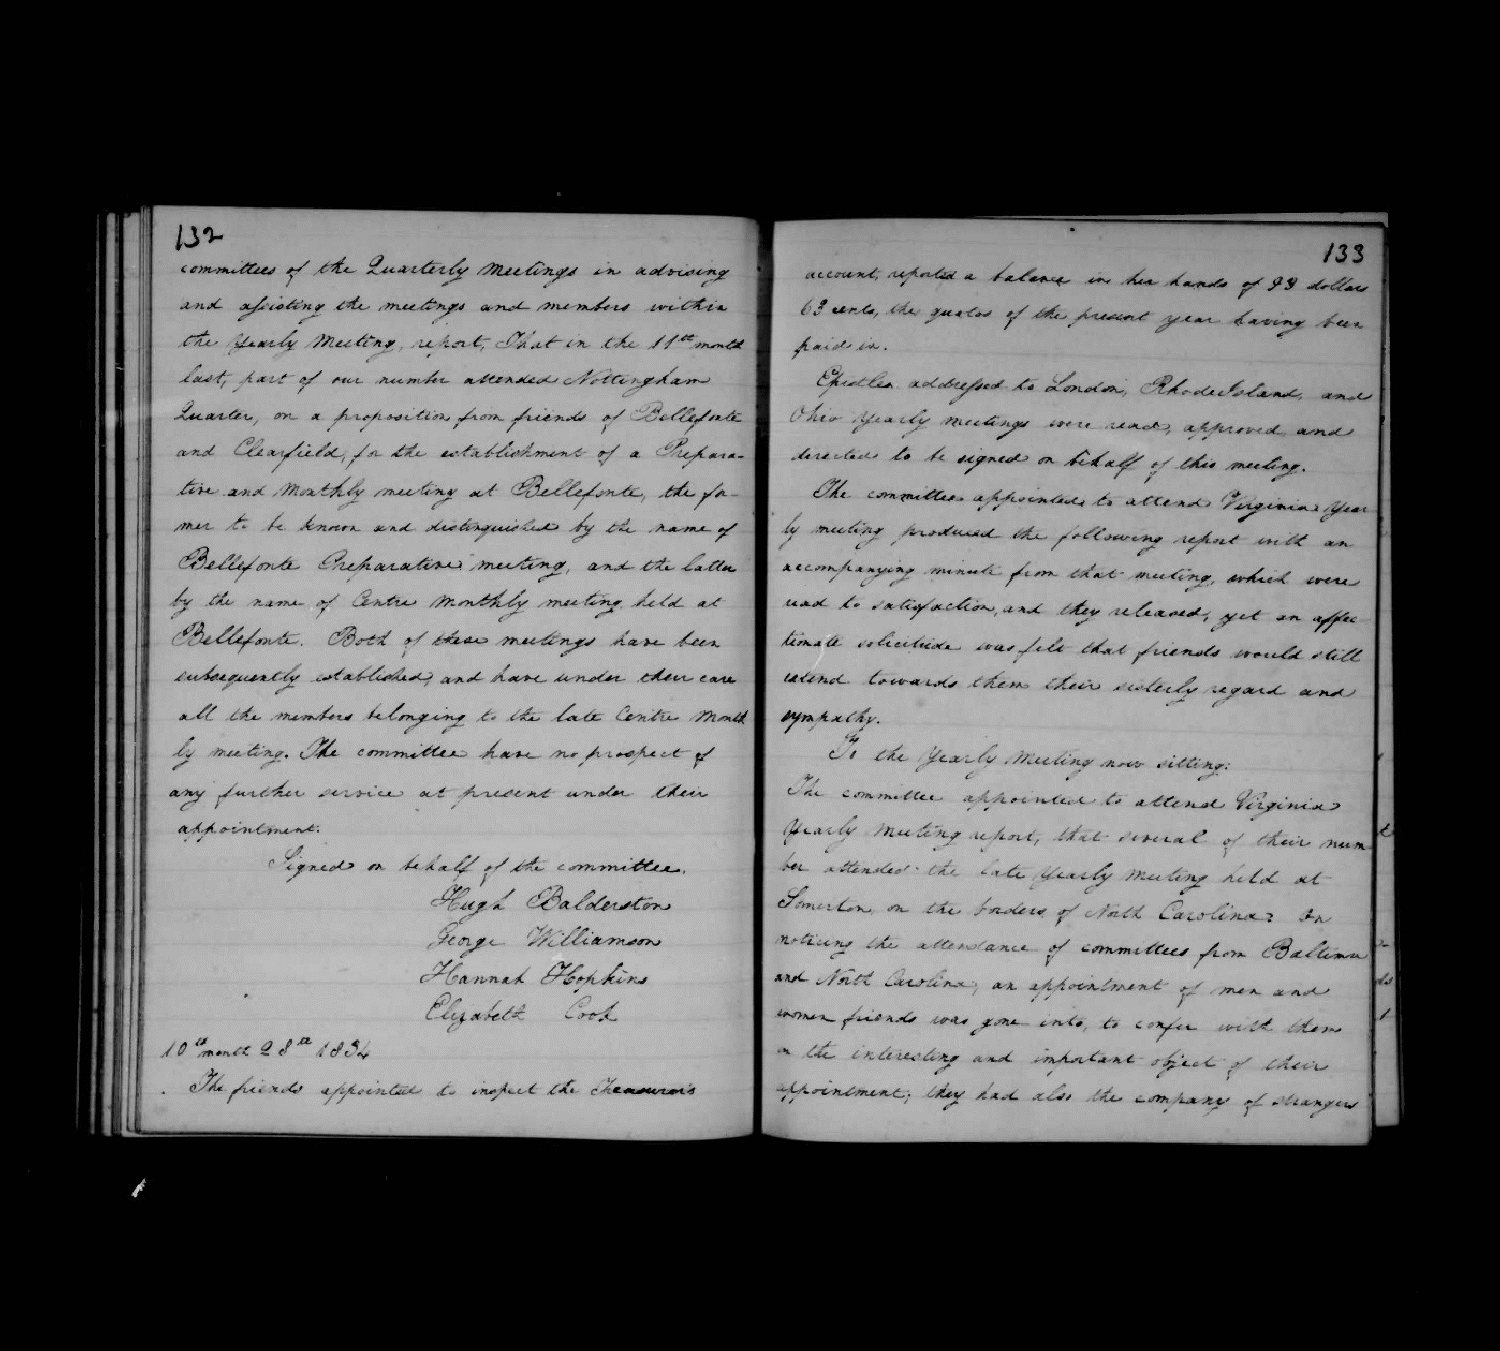 132
committees of the Quarterly Meetings in advising
and assisting the meetings and members within
the Yearly Meeting, report, That in the 11th month
last, part of our number attended Nottingham
Quarter, on a proposition from friends of Bellefonte
and Clearfield, for the establishment of a Prepara-
tive and Monthly meeting at Bellefonte, the for-
mer to be known and distinguished by the name of
Bellefonte Preparative meeting, and the latter
by the name of Centre Monthly meeting held at
Bellefonte. Both of these meetings have been
subsequently established, and have under their care
all the members belonging to the late Centre Month
ly meeting. The committee have no prospect of
any further service at present under their
appointment.
Signed on behalf of the committee.
Hugh Balderston
George Williamson
Hannah Hopkins
Elizabeth Cook
10th month 28th 1834
The friends appointed to inspect the Treasurer's
133
account, reported a balance in her hands of dollars
63 cents, the quotas of the present year having been
paid in.
Epistles addressed to London, Rhode Island, and
Ohio Yearly meetings were read, approved and
directed to be signed on behalf of this meeting.
The committee appointed to attend Virginia Year
ly meeting produced the following report with an
accompanying minute from that meeting, which were
read to satisfaction, and they released, yet an affec
tionate solicitude was felt that friends would still
extend towards them their sisterly regard and
sympathy.
To the Yearly Meeting now sitting:
The committee appointed to attend Virginia
Yearly Meeting report, that several of their num
ber attended the late Yearly Meeting held at
Somerton, on the borders of North Carolina: On
noticing the attendance of committees from Baltimore
and North Carolina, an appointment of men and
women friends was gone into, to confer with them
on the interesting and important object of their
appointment; they had also the company of strangers